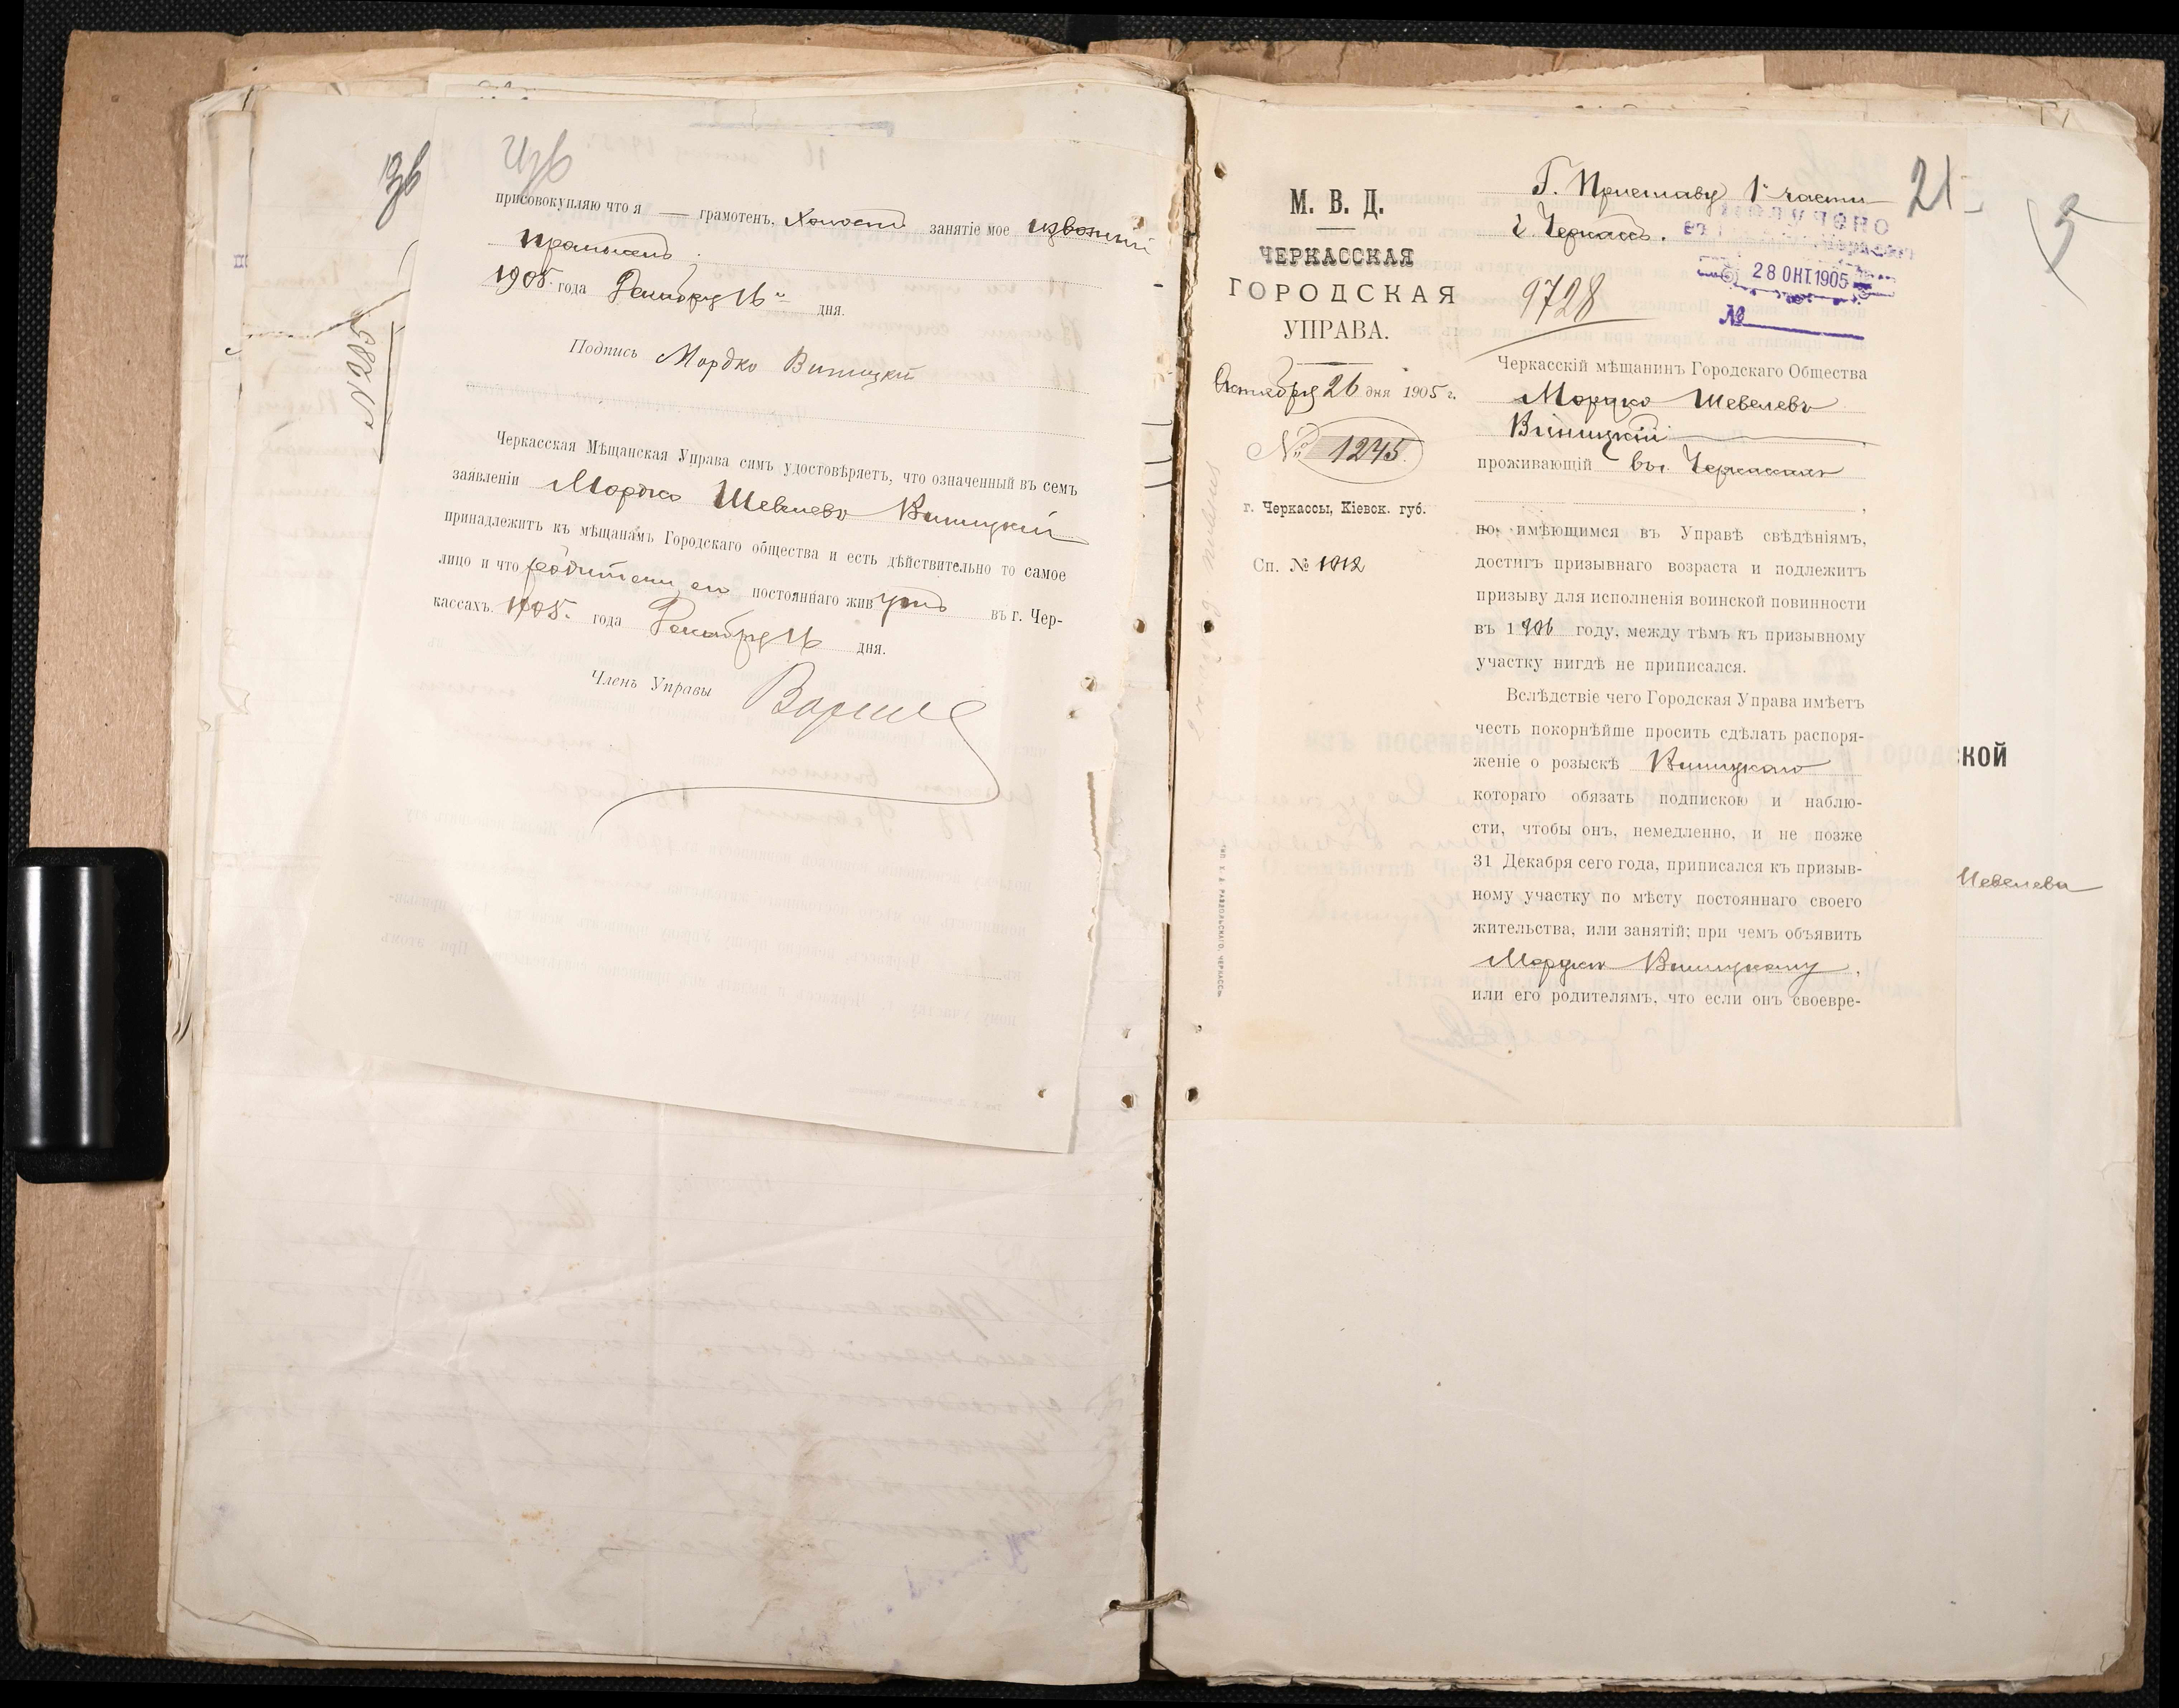 присовокупляю что я — грамотенъ, холостъ занятіе мое извозный
промыселъ
1905. года Декабря 16 дня.
Подпись Мордко Виницкій
Черкасская Мѣщанская Управа симъ удостовѣряетъ, что означенный въ семъ
заявленіи Мордко Шевелевъ Виницкій
принадлежитъ къ мѣщанамъ Городскаго общества и есть дѣйствительно то самое
лицо и что родители его постояннаго живутъ въ г. Чер-
кассахъ. 1905. года Декабря 16 дня.
Членъ Управы
М. В. Д.
ЧЕРКАССКАЯ
ГОРОДСКАЯ
УПРАВА.
Октября 26 дня 1905 г.
№ 1245.
г. Черкассы, Кіевск. губ.
Сп. № 1012
Г. Приставу 1й части
г. Черкассъ.
28 ОКТ. 1905
№
9728
21
Черкасскій мѣщанинъ Городскаго Общества
Мордко Шевелевъ
Виницкій
проживающій въ г. Черкассахъ
по, имѣющимся въ Управѣ свѣдѣніямъ,
достигъ призывнаго возраста и подлежитъ
призыву для исполненія воинской повинности
въ 1906 году, между тѣмъ къ призывному
участку нигдѣ не приписался.
Вслѣдствіе чего Городская Управа имѣетъ
честь покорнѣйше просить сдѣлать распоря-
женіе о розыскѣ Виницкаго
котораго обязать подпискою и наблю-
сти, чтобы онъ, немедленно, и не позже
31 Декабря сего года, приписался къ призыв-
ному участку по мѣсту постояннаго своего
жительства, или занятій; при чемъ объявить
Мордкѣ Виницкому,
или его родителямъ, что если онъ своевре-
ТИП. В. А. РАЗДОЛЬСКАГО, ЧЕРКАССЫ
ской
Шевелева